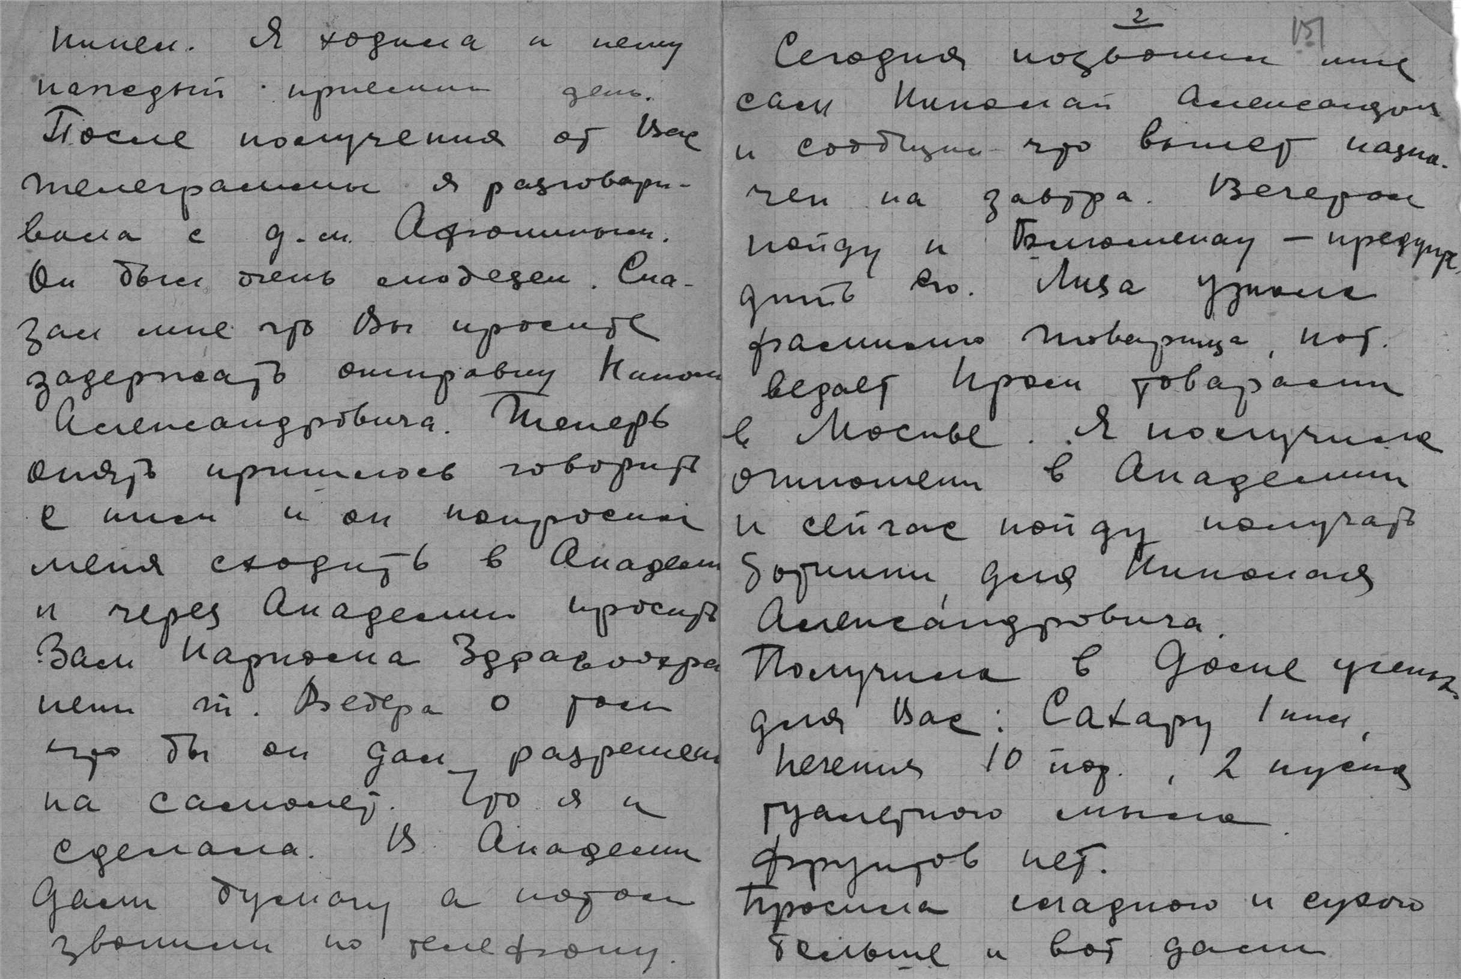 ним. Я ходила к нему
каждый приемный день.
После получения от Вас
телеграммы я разговари-
вала с д-м Афониным.
Он был очень любезен. Ска-
зал мне что Вы просите
задержать отправку Никол
Александровича. Теперь
опять пришлось говорить
с ним и он попросил
меня сходить в Академ
и через Академию просить
Зам Наркома Здравоохра
нения т. о том
что бы он дал разрешен
на самолет. Что я и
сделала. В Академии
дали бумагу а потом
звонили по телефону.
2
151
Сегодня позвонил мне
сам Николай Александр
и сообщил что вылет назна-
чен на завтра. Вечером
пойду к – предупре
дить его. Лиза узнала
фамилию товарища, кот.
ведает пром товарами
в Москве. Я получила
отношение в Академии
и сейчас пойду получать
ботинки для Николая
Александровича.
Получила в Доме ученых
для Вас: Сахару 1 кил,
печения 10 пор., 2 куска
туалетного мыла
фруктов нет.
Просила сладкого и сухого
больше и вот дали